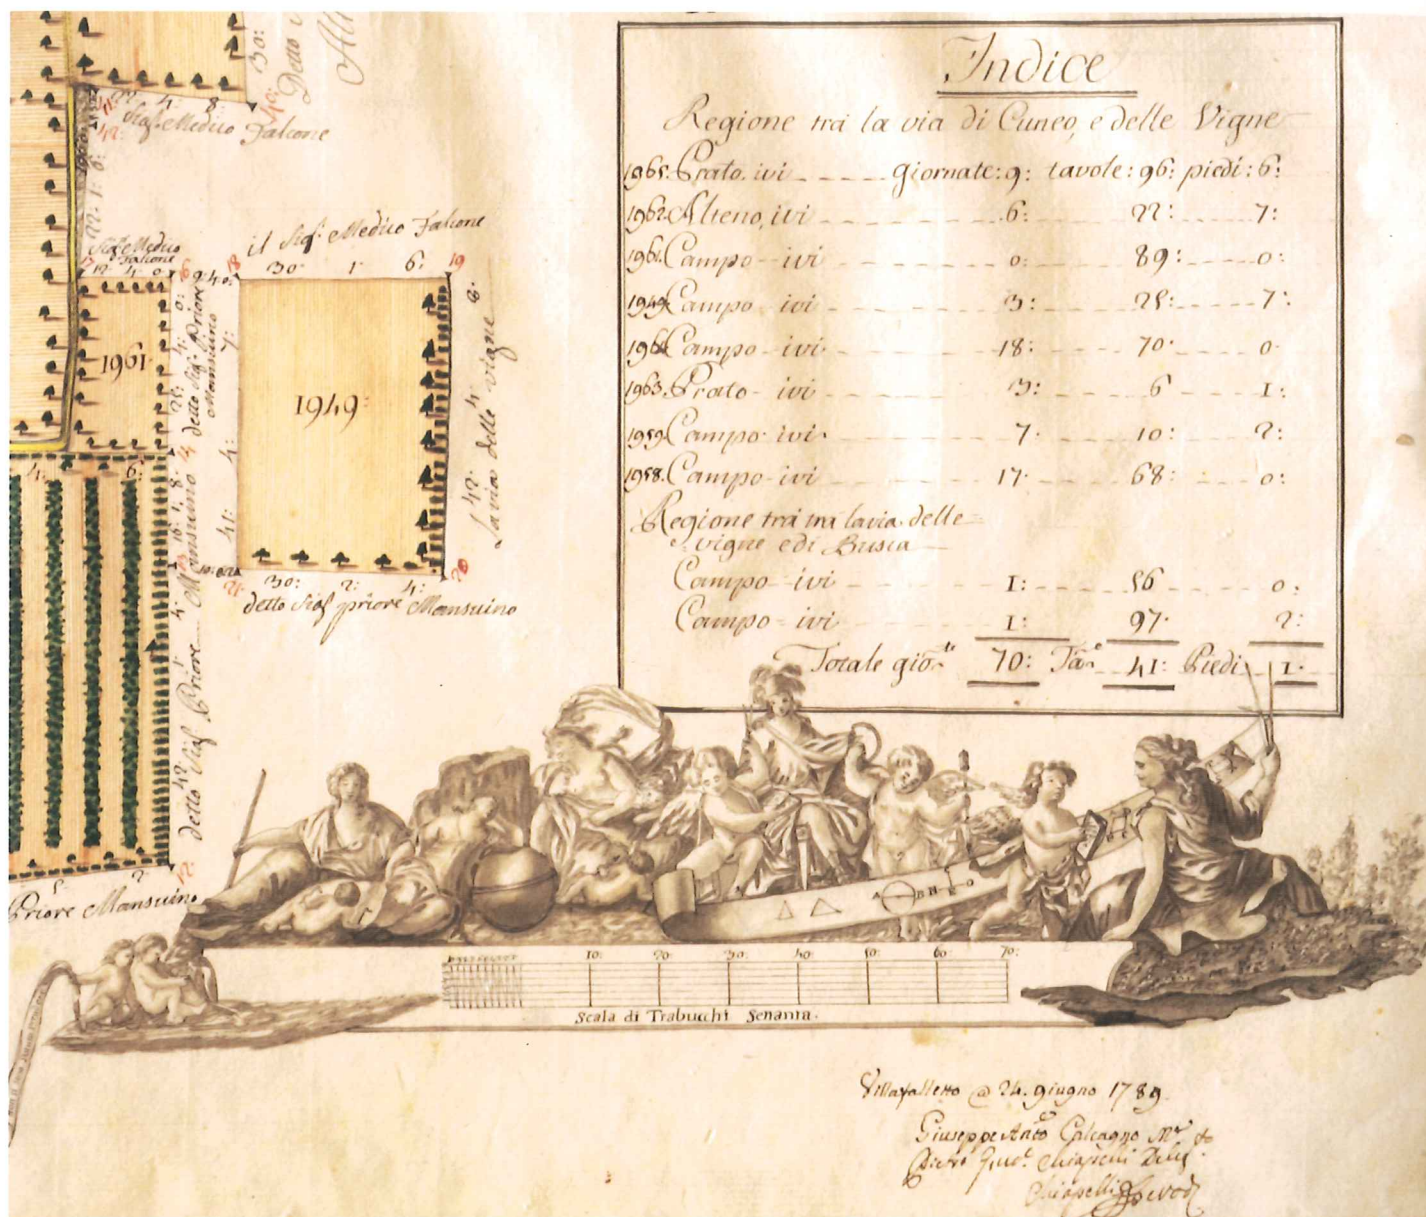 30:
Detto
4: 8:
Sig.r Medico Falcone
Sig.r Medico
Falcone
12 4 0
1961
il Sig.r Medico Falcone
18 30 1 6: 19
1949:
42 4 8:
La via delle vigne
detto Sig.r Priore
Mansuino
7:
4:
41:
30: 2: 4: 20
detto Sig.r priore Mansuino
4: 6:
detto Sig.r Priore Mansuino
Priore Mansuino
Indice
Regione tra la via di Cuneo, e delle Vigne
1965. Prato ivi giornate: 9: tavole: 96: piedi: 6:
1962. Alteno, ivi 6: 22: 7:
1961. Campo ivi 0: 89: 0:
1949. Campo ivi 3: 25: 7:
Campo ivi 18: 70 0
1963. Prato ivi 3: 6 1:
1959. Campo ivi 7 10: 2:
1958. Campo ivi 17 68: 0:
Regione tra tra la via delle
vigne e di Busca
Campo ivi 1: 56 0:
Campo ivi 1: 97 2:
Totale gio.te 70: Ta.e 41: Piedi 1
10: 20: 30: 40: 50: 60: 70:
Scala di Trabucchi Settanta.
Villafalletto @ 24. giugno 1789
Giuseppe Ant.o Calcagno
Pietro Chiapelli
Chiapelli